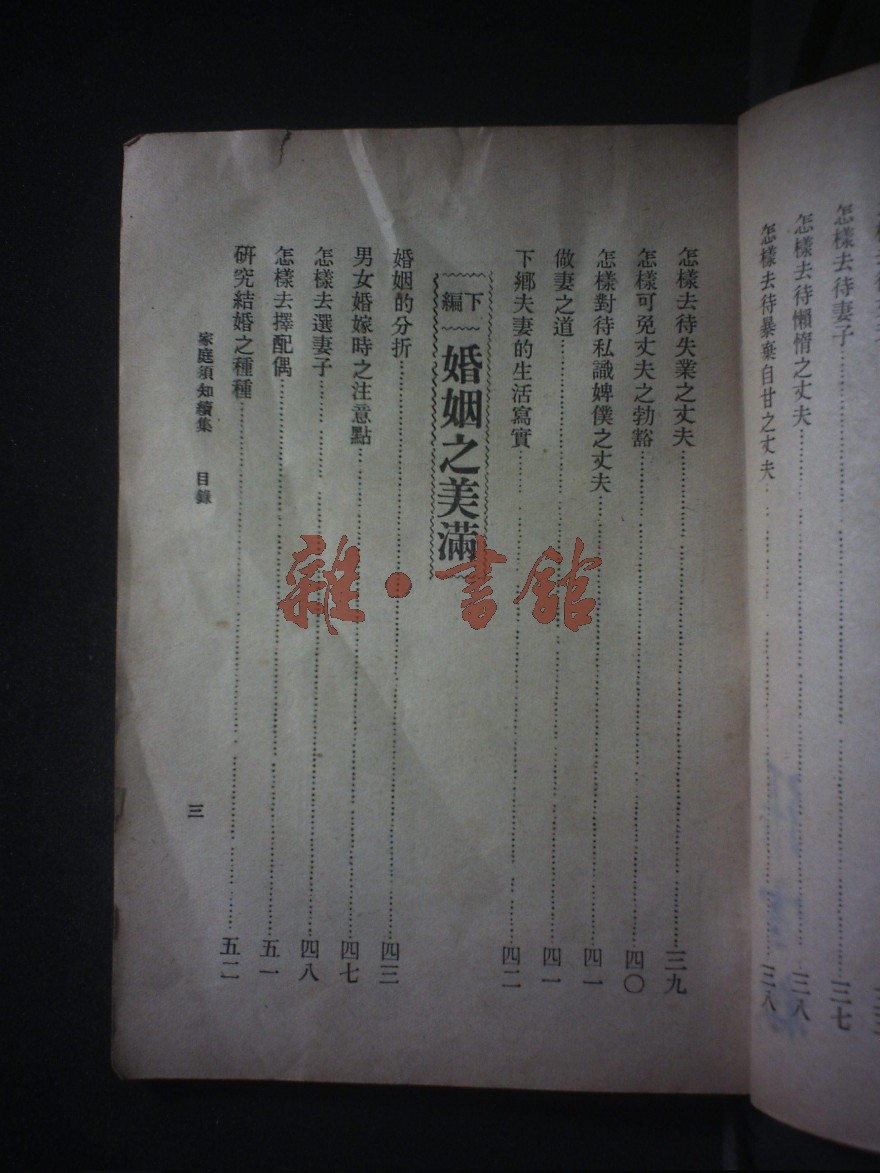 怎樣去待妻子……三七
怎樣去待懶惰之丈夫……三八
怎樣去待暴棄自甘之丈夫……三八
怎樣去待失業之丈夫……三九
怎樣可免丈夫之勃谿……四〇
怎樣對待私識婢僕之丈夫……四一
做妻之道……四一
下鄉夫妻的生活寫實……四二
下編 婚姻之美滿
婚姻的分折……四三
男女婚嫁時之注意點……四七
怎樣去選妻子……四八
怎樣去擇配偶……五一
研究結婚之種種……五二
家庭須知續集 目錄
三
雜·書館